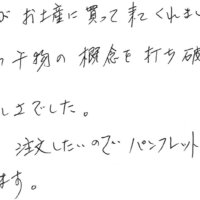 が お土産に 買って来てくれまし
っ 干物の 概念を 打ち破
し上でした。
注文したいので パンフレット
ます。